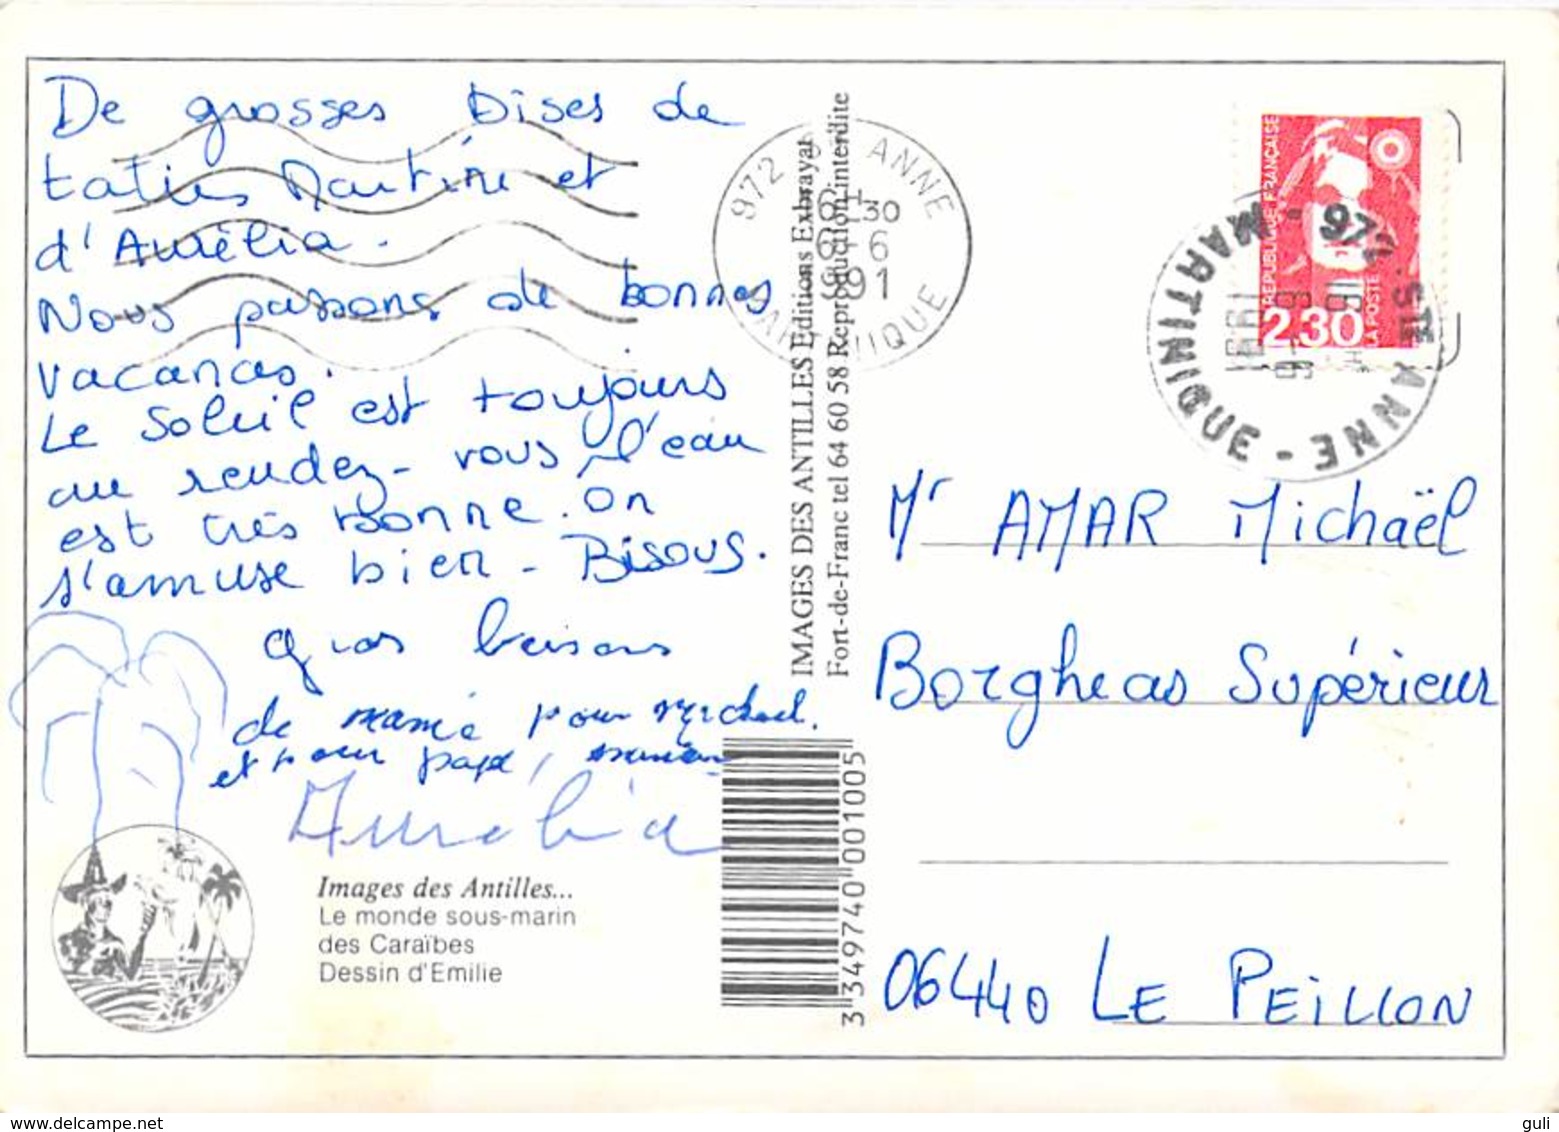 De grosses bises de
taties Martine et
d'Aurélia.
Nous passons de bonnes
vacances.
Le soleil est toujours
au rendez-vous l'eau
est très bonne. On
s'amuse bien - Bisous.
gros baisers
de mamie pour Michael.
et pour papa,
Aurélia
Images des Antilles...
Le monde sous-marin
des Caraïbes
Dessin d'Emilie
IMAGES DES ANTILLES Editions Exbrayat
Fort-de-Franc tel 64 60 58 Reproduction interdite
3 349740 001005
972 ANNE
16H30
6-6
1991
MARTINIQUE
REPUBLIQUE FRANÇAISE
2,30
LA POSTE
972 - STE ANNE - MARTINIQUE -
16H
6-6
1991
Mr AMAR Michaël
Borgheas Supérieur
06440 LE PEILLON
guli